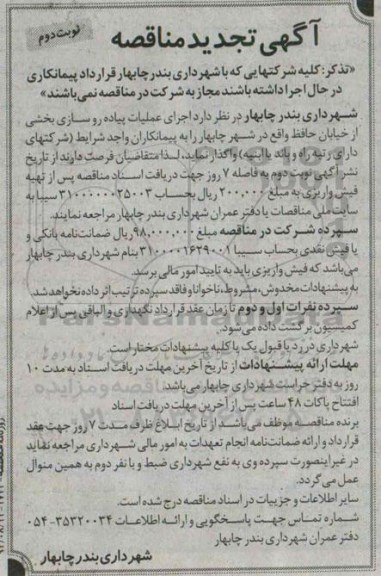 آگهی تجدید مناقصه
نوبت دوم
«تذکر: کلیه شرکتهایی که با شهرداری بندر چابهار قرارداد پیمانکاری
در حال اجرا داشته باشند مجاز به شرکت در مناقصه نمی‌باشند»
شهرداری بندر چابهار در نظر دارد اجرای عملیات پیاده رو سازی بخشی
از خیابان حافظ واقع در شهر چابهار را به پیمانکاران واجد شرایط (شرکتهای
دارای رتبه راه و باند یا ابنیه) واگذار نماید، لذا متقاضیان فرصت دارند از تاریخ
نشر آگهی نوبت دوم به فاصله ۷ روز جهت دریافت اسناد مناقصه پس از تهیه
فیش واریزی به مبلغ ۲۰۰,۰۰۰ ریال بحساب ۳۱۰۰۰۰۰۰۲۵۰۰۳ سیبا به
سایت ملی مناقصات یا دفتر عمران شهرداری بندر چابهار مراجعه نمایند.
سپرده شرکت در مناقصه مبلغ ۹۸,۰۰۰,۰۰۰ ریال ضمانت‌نامه بانکی و
یا فیش نقدی بحساب سیبا ۳۱۰۰۰۰۱۶۲۹۰۰۱ بنام شهرداری بندر چابهار
می‌باشد که فیش واریزی باید به تایید امور مالی برسد.
به پیشنهادات مخدوش، مشروط، ناخوانا و فاقد سپرده ترتیب اثر داده نخواهد شد.
سپرده نفرات اول و دوم تا زمان عقد قرارداد نگهداری و الباقی پس از اعلام
کمیسیون برگشت داده می‌شود.
شهرداری در رد یا قبول یک یا کلیه پیشنهادات مختار است.
مهلت ارائه پیشنهادات از تاریخ آخرین مهلت دریافت اسناد به مدت ۱۰
روز به دفتر حراست شهرداری چابهار می‌باشد.
افتتاح پاکات ۴۸ ساعت پس از آخرین مهلت دریافت اسناد
برنده مناقصه موظف می‌باشد از تاریخ ابلاغ ظرف مدت ۷ روز جهت عقد
قرارداد و ارائه ضمانت‌نامه انجام تعهدات به امور مالی شهرداری مراجعه نماید
در غیر اینصورت سپرده وی به نفع شهرداری ضبط و با نفر دوم به همین منوال
عمل می‌گردد.
سایر اطلاعات و جزییات در اسناد مناقصه درج شده است.
شماره تماس جهت پاسخگویی و ارائه اطلاعات ۳۵۳۲۰۰۳۴-۰۵۴
دفتر عمران شهرداری بندر چابهار
شهرداری بندر چابهار